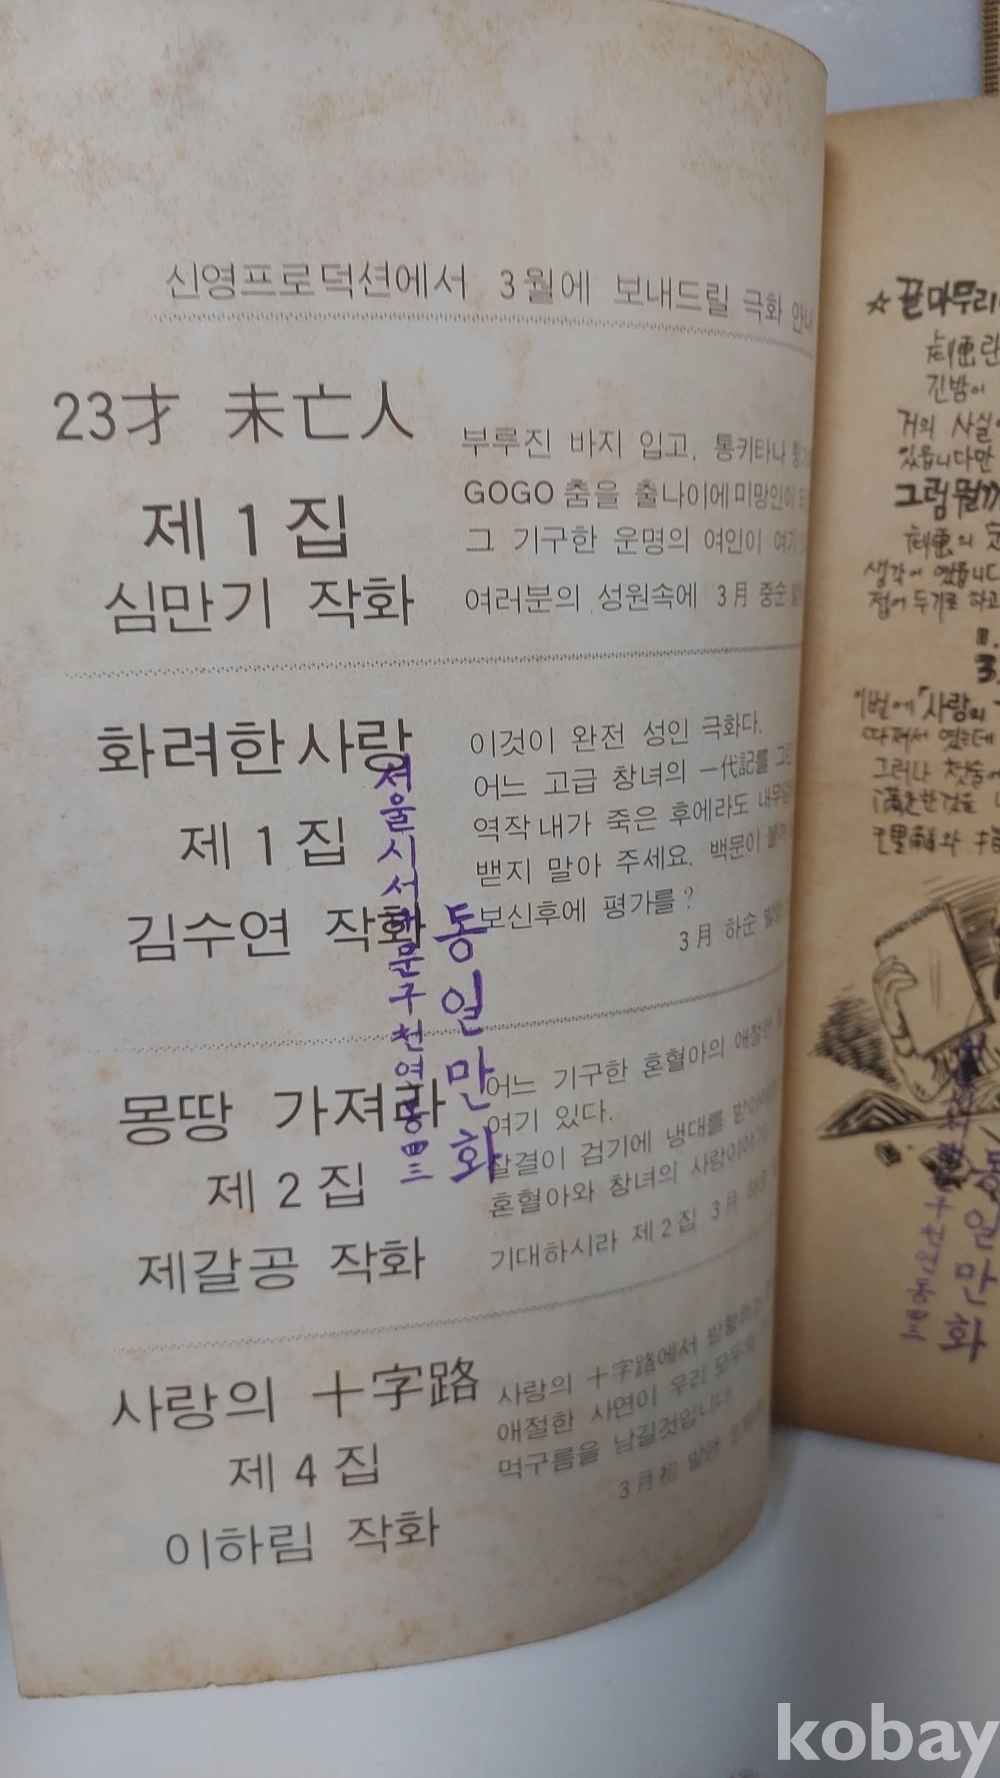 신영프로덕션에서 3월에 보내드릴 극화
23才 未亡人
제 1 집
심만기 작화
부루진 바지 입고, 통키타나
GOGO 춤을 출나이에 미망인이
그 기구한 운명의 여인이 여기
여러분의 성원속에 3月 중순
화려한 사랑
제 1 집
김수연 작화
이것이 완전 성인 극화다.
어느 고급 창녀의 一代記를
역작 내가 죽은 후에라도
뱉지 말아 주세요. 백문이
보신후에 평가를?
3月 하순
몽땅 가져라
제 2 집
제갈공 작화
어느 기구한 혼혈아의 애절한
여기 있다.
살결이 검기에 냉대를
혼혈아와 창녀의 사랑이야기
기대하시라 제 2 집 3月
사랑의 十字路
제 4 집
이하림 작화
사랑의 十字路에서
애절한 사연이 우리
먹구름을 남길것입니다
3月初
서울시서대문구천연동四三
동일만화
☆ 끝마무리
긴밤이
거의 사실
있읍니다만
그럼 뭘까
생각이 였읍니다
접어 두기로 하고
3.
이번에 「사랑의
따져서 였는데
그러나 첫술에
동일만화
kobay